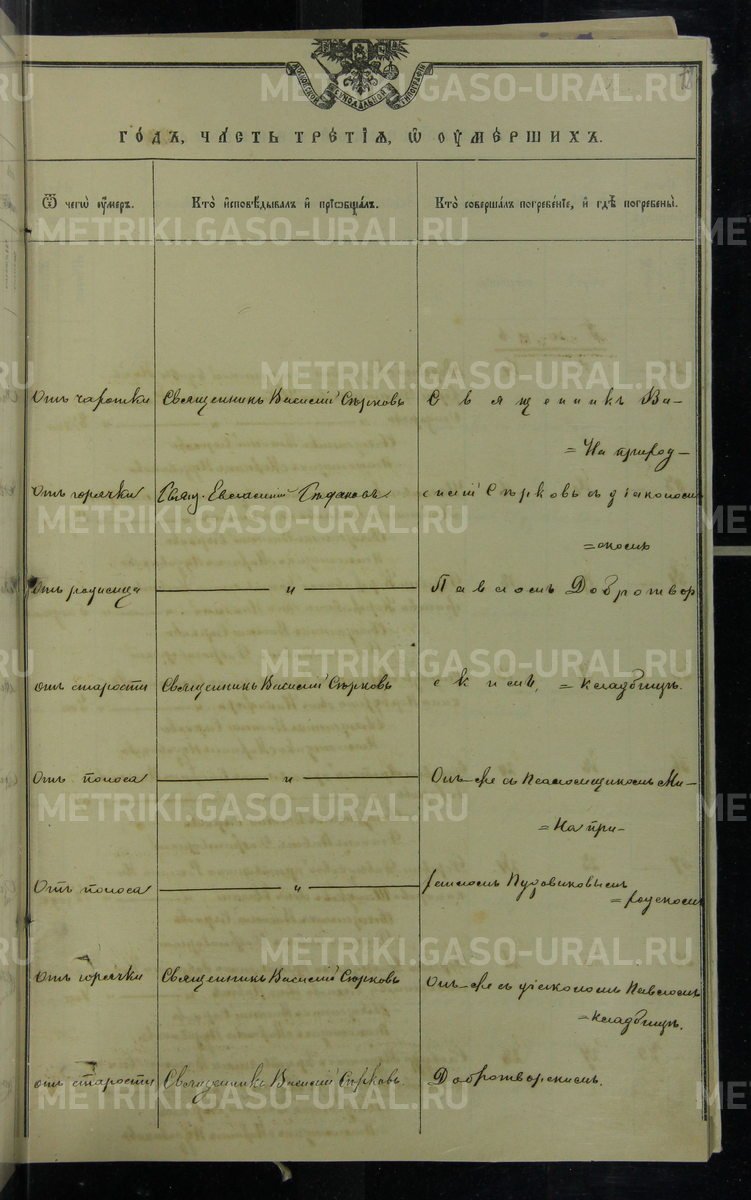 МОСКОВСКОЙ СѴНОДАЛЬНОЙ ТИПОГРАФІИ
го́дъ, ча́сть тре́тїѧ, ѡ҆ оу҆ме́ршихъ.
Ѿ чегѡ̀ оу҆́меръ.
Кто̀ и҆сповѣ́дывалъ и҆ прїѡбща́лъ.
Кто̀ соверша́лъ погребе́нїе, и҆ гдѣ̀ погребены̀.
Отъ чахотки Священникъ Василій Сѣрковъ Священникъ Ва-
= На приход-
Отъ горячки Свящ. Стефановъ силій Сѣрковъ съ діакономъ
Отъ родимца — и — Павломъ Добротвор
отъ старости Священникъ Василій Сѣрковъ скимъ, = кладбищѣ.
Отъ поноса — и — Онъ-же съ Псаломщикомъ Ми-
= На при-
Отъ поноса — и — Пудовиковымъ
= ходскомъ
Отъ горячки Священникъ Василій Сѣрковъ Онъ-же съ діакономъ Павломъ
= кладбищѣ.
отъ старости Священникъ Василій Сѣрковъ. Добротворскимъ.
METRIKI.GASO-URAL.RU